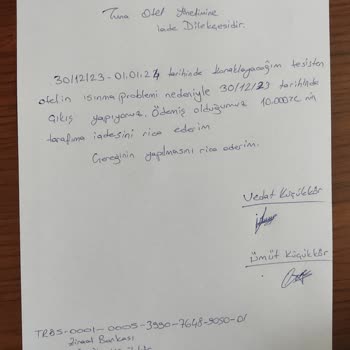 Tuna Otel Yönetimine
İade Dilekçesidir.
30/12/23 - 01.01.24 tarihinde konaklayacağım tesisten
otelin ısınma problemi nedeniyle 30/12/23 tarihinde
çıkış yapıyoruz. Ödemiş olduğumuz 10.000TL nin
tarafıma iadesini rica ederim
Gereğinin yapılmasını rica ederim.
Vedat Küçükkör
Ümüt Küçükkör
TR85-0001-0005-3990-7648-9050-01
Ziraat Bankası